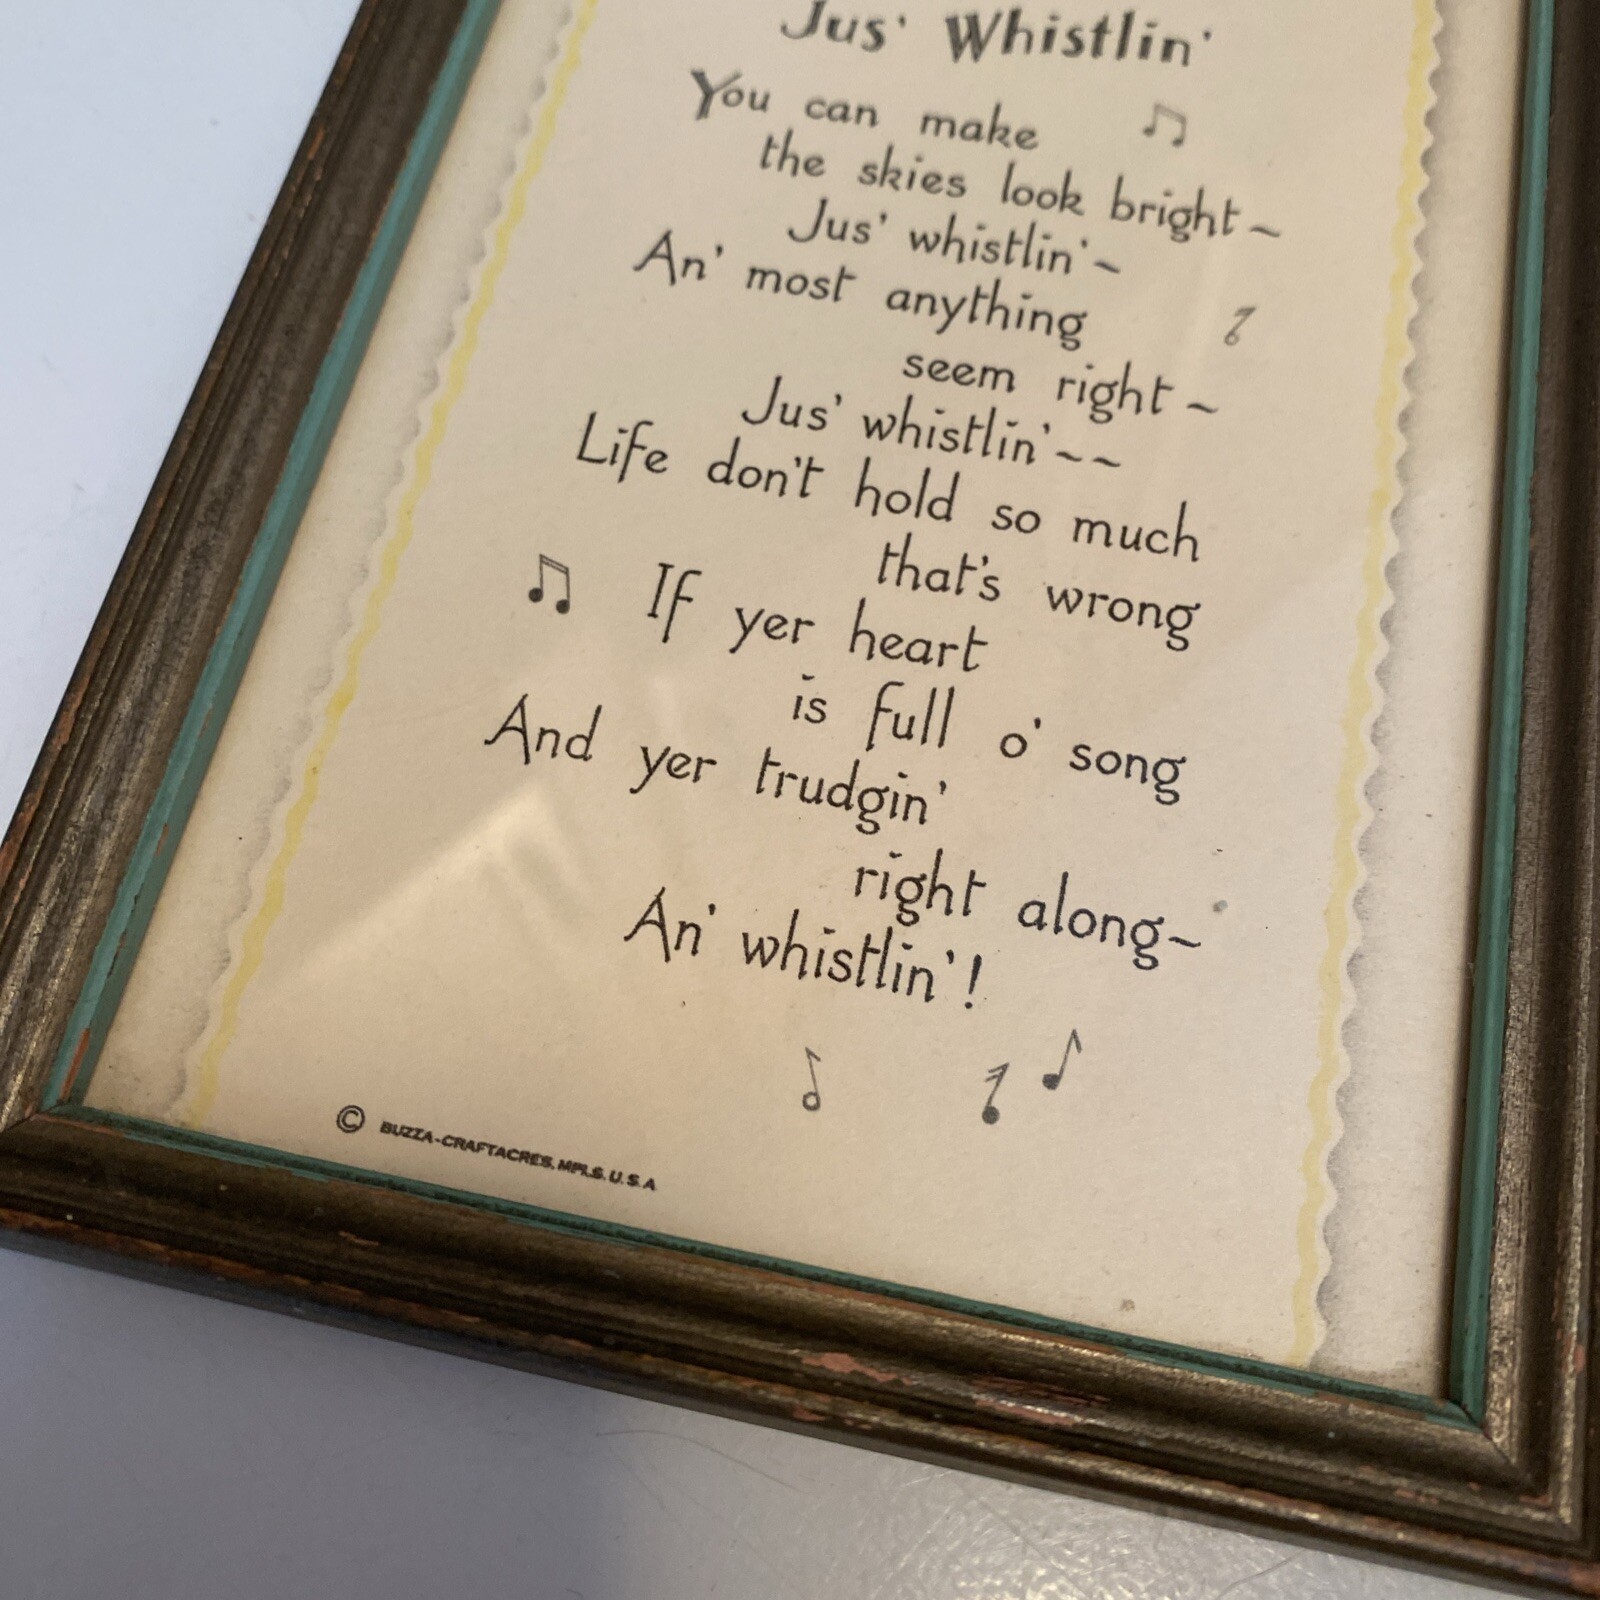 Jus' Whistlin'
You can make
the skies look bright~
Jus' whistlin'~
An' most anything
seem right~
Jus' whistlin'~~
Life don't hold so much
that's wrong
If yer heart
is full o' song
And yer trudgin'
right along~
An' whistlin'!
© BUZZA-CRAFTACRES, MPLS. U.S.A